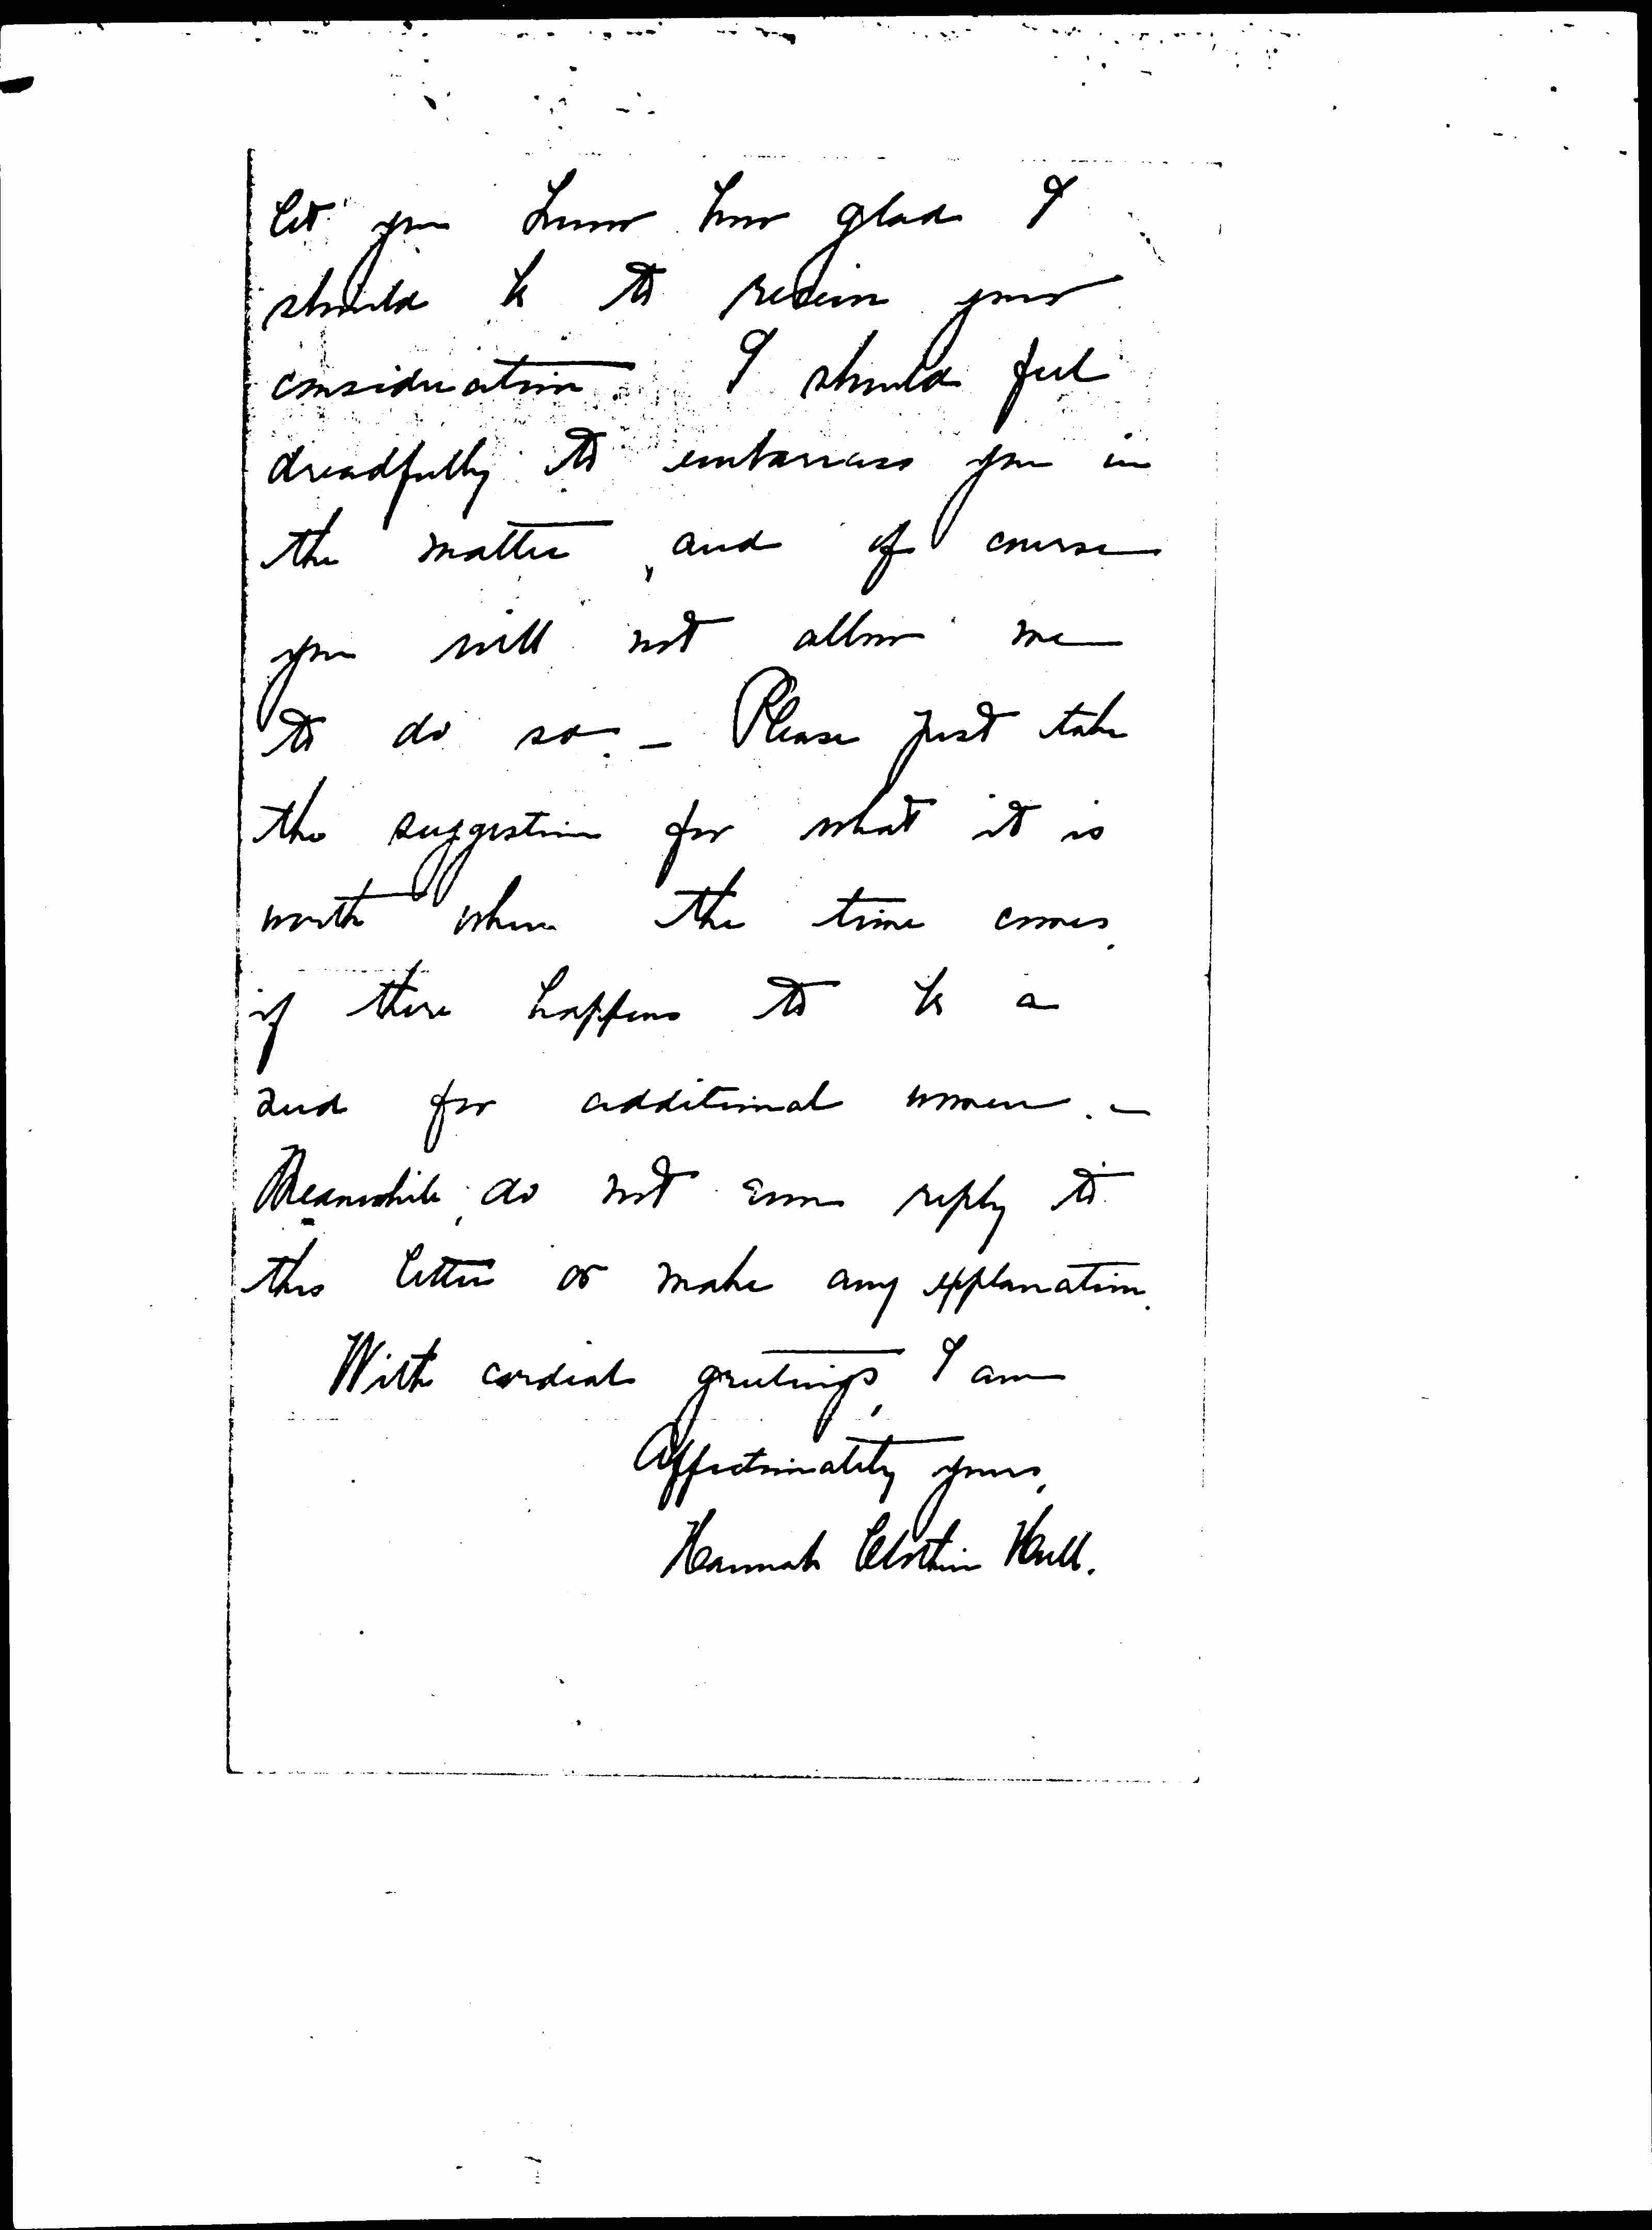 let you know how glad I
should be to receive your
consideration. I should feel
dreadfully to embarrass you in
the matter, and of course
you will not allow me
to do so. – Please just take
the suggestion for what it is
worth when the time comes,
if there happens to be a
need for additional women. –
Meanwhile, do not even reply to
this letter or make any explanation.
With cordial greetings, I am
Affectionately yours,
Hannah Clothier Hull.